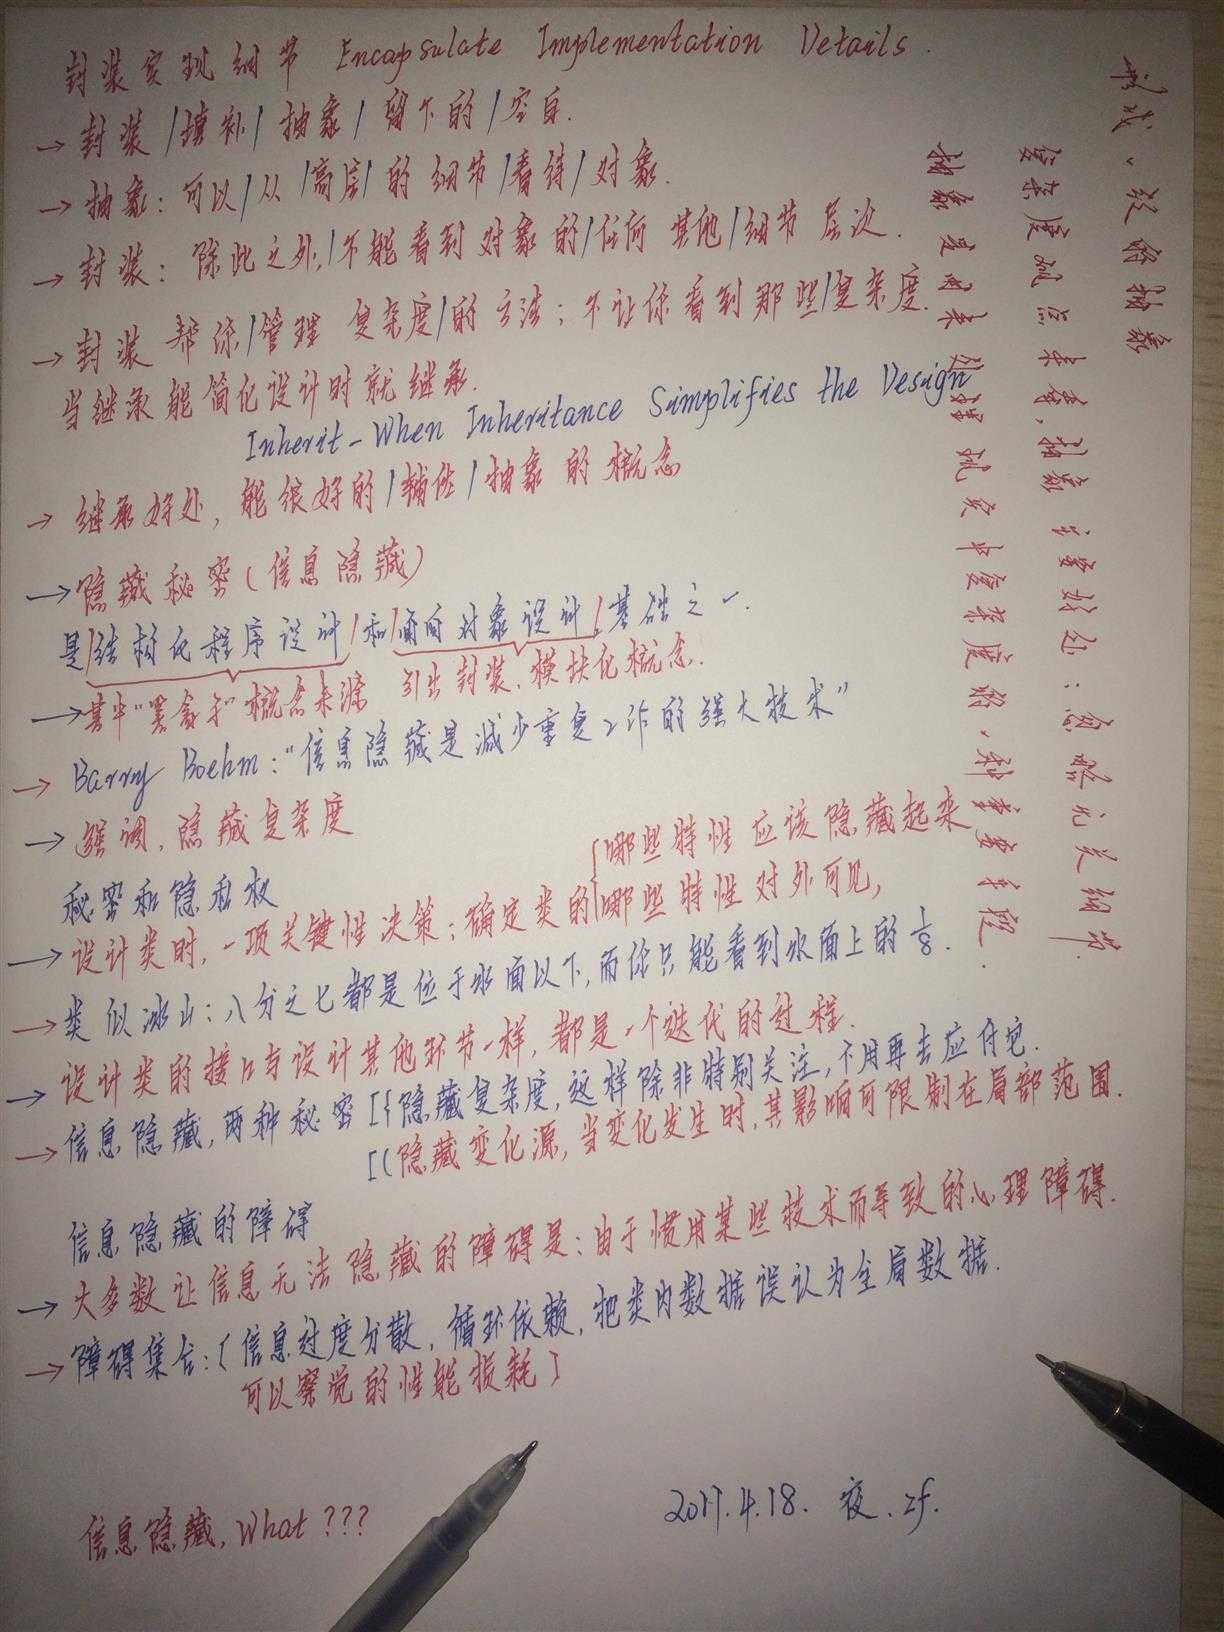 封装实现细节 Encapsulate Implementation Details.
→ 封装/填补/抽象/留下的/空白.
→ 抽象: 可以/从/高层/的细节/看待/对象.
→ 封装: 除此之外,/不能看到对象的/任何其他/细节层次.
→ 封装帮你/管理复杂度/的方法; 不让你看到那些/复杂度.
当继承能简化设计时就继承.
Inherit-When Inheritance Simplifies the Design
→ 继承好处, 能很好的/辅佐/抽象的概念
→ 隐藏秘密(信息隐藏)
是/结构化程序设计/和/面向对象设计/基础之一.
→ 其中"黑盒子"概念来源 引出封装、模块化概念.
→ Barry Boehm: "信息隐藏是减少重复工作的强大技术"
→ 强调, 隐藏复杂度
秘密和隐私权
→ 设计类时, 一项关键性决策; 确定类的{哪些特性应该隐藏起来
哪些特性对外可见,
→ 类似冰山: 八分之七都是位于水面以下, 而你只能看到水面上的 1/8.
→ 设计类的接口与设计其他环节一样, 都是一个迭代的过程.
→ 信息隐藏, 两种秘密 [{隐藏复杂度, 这样除非特别关注, 不用再去应付它.
[(隐藏变化源, 当变化发生时, 其影响可限制在局部范围.
信息隐藏的障碍
→ 大多数让信息无法隐藏的障碍是: 由于惯用某些技术而导致的心理障碍.
→ 障碍集合: [信息过度分散, 循环依赖, 把类内数据误认为全局数据.
可以察觉的性能损耗]
信息隐藏, What ???
2017.4.18. 夜. zf.
形成、较好抽象
复杂度观点来看, 抽象主要好处: 忽略无关细节.
抽象是用来处理现实中复杂度的一种重要手段.